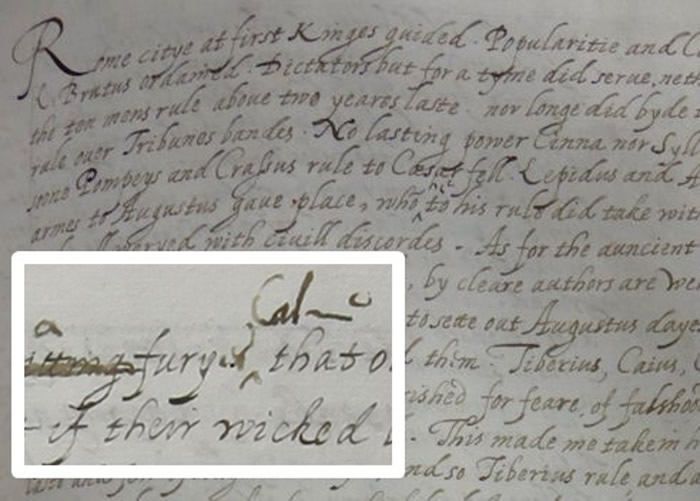 Rome citye at first Kinges guided. Popularitie and
L Brutus ordained. Dictators but for a tyme did serue,
the ten mens rule above two yeares laste. nor longe did byde
rule over Tribunes bandes. No lasting power Cinna nor Syll
soone Pompeys and Crassus rule to Cæsar fell. Lepidus and A
armes to Augustus gave place, who to his rule did take wit
with civill discordes. As for the auncient
, by cleare authors are we
to sette out Augustus daye
them. Tiberius, Caius,
for feare, of falsho
. This made me take in
nd so Tiberius rule and
a
Cal
furye that o
if their wicked